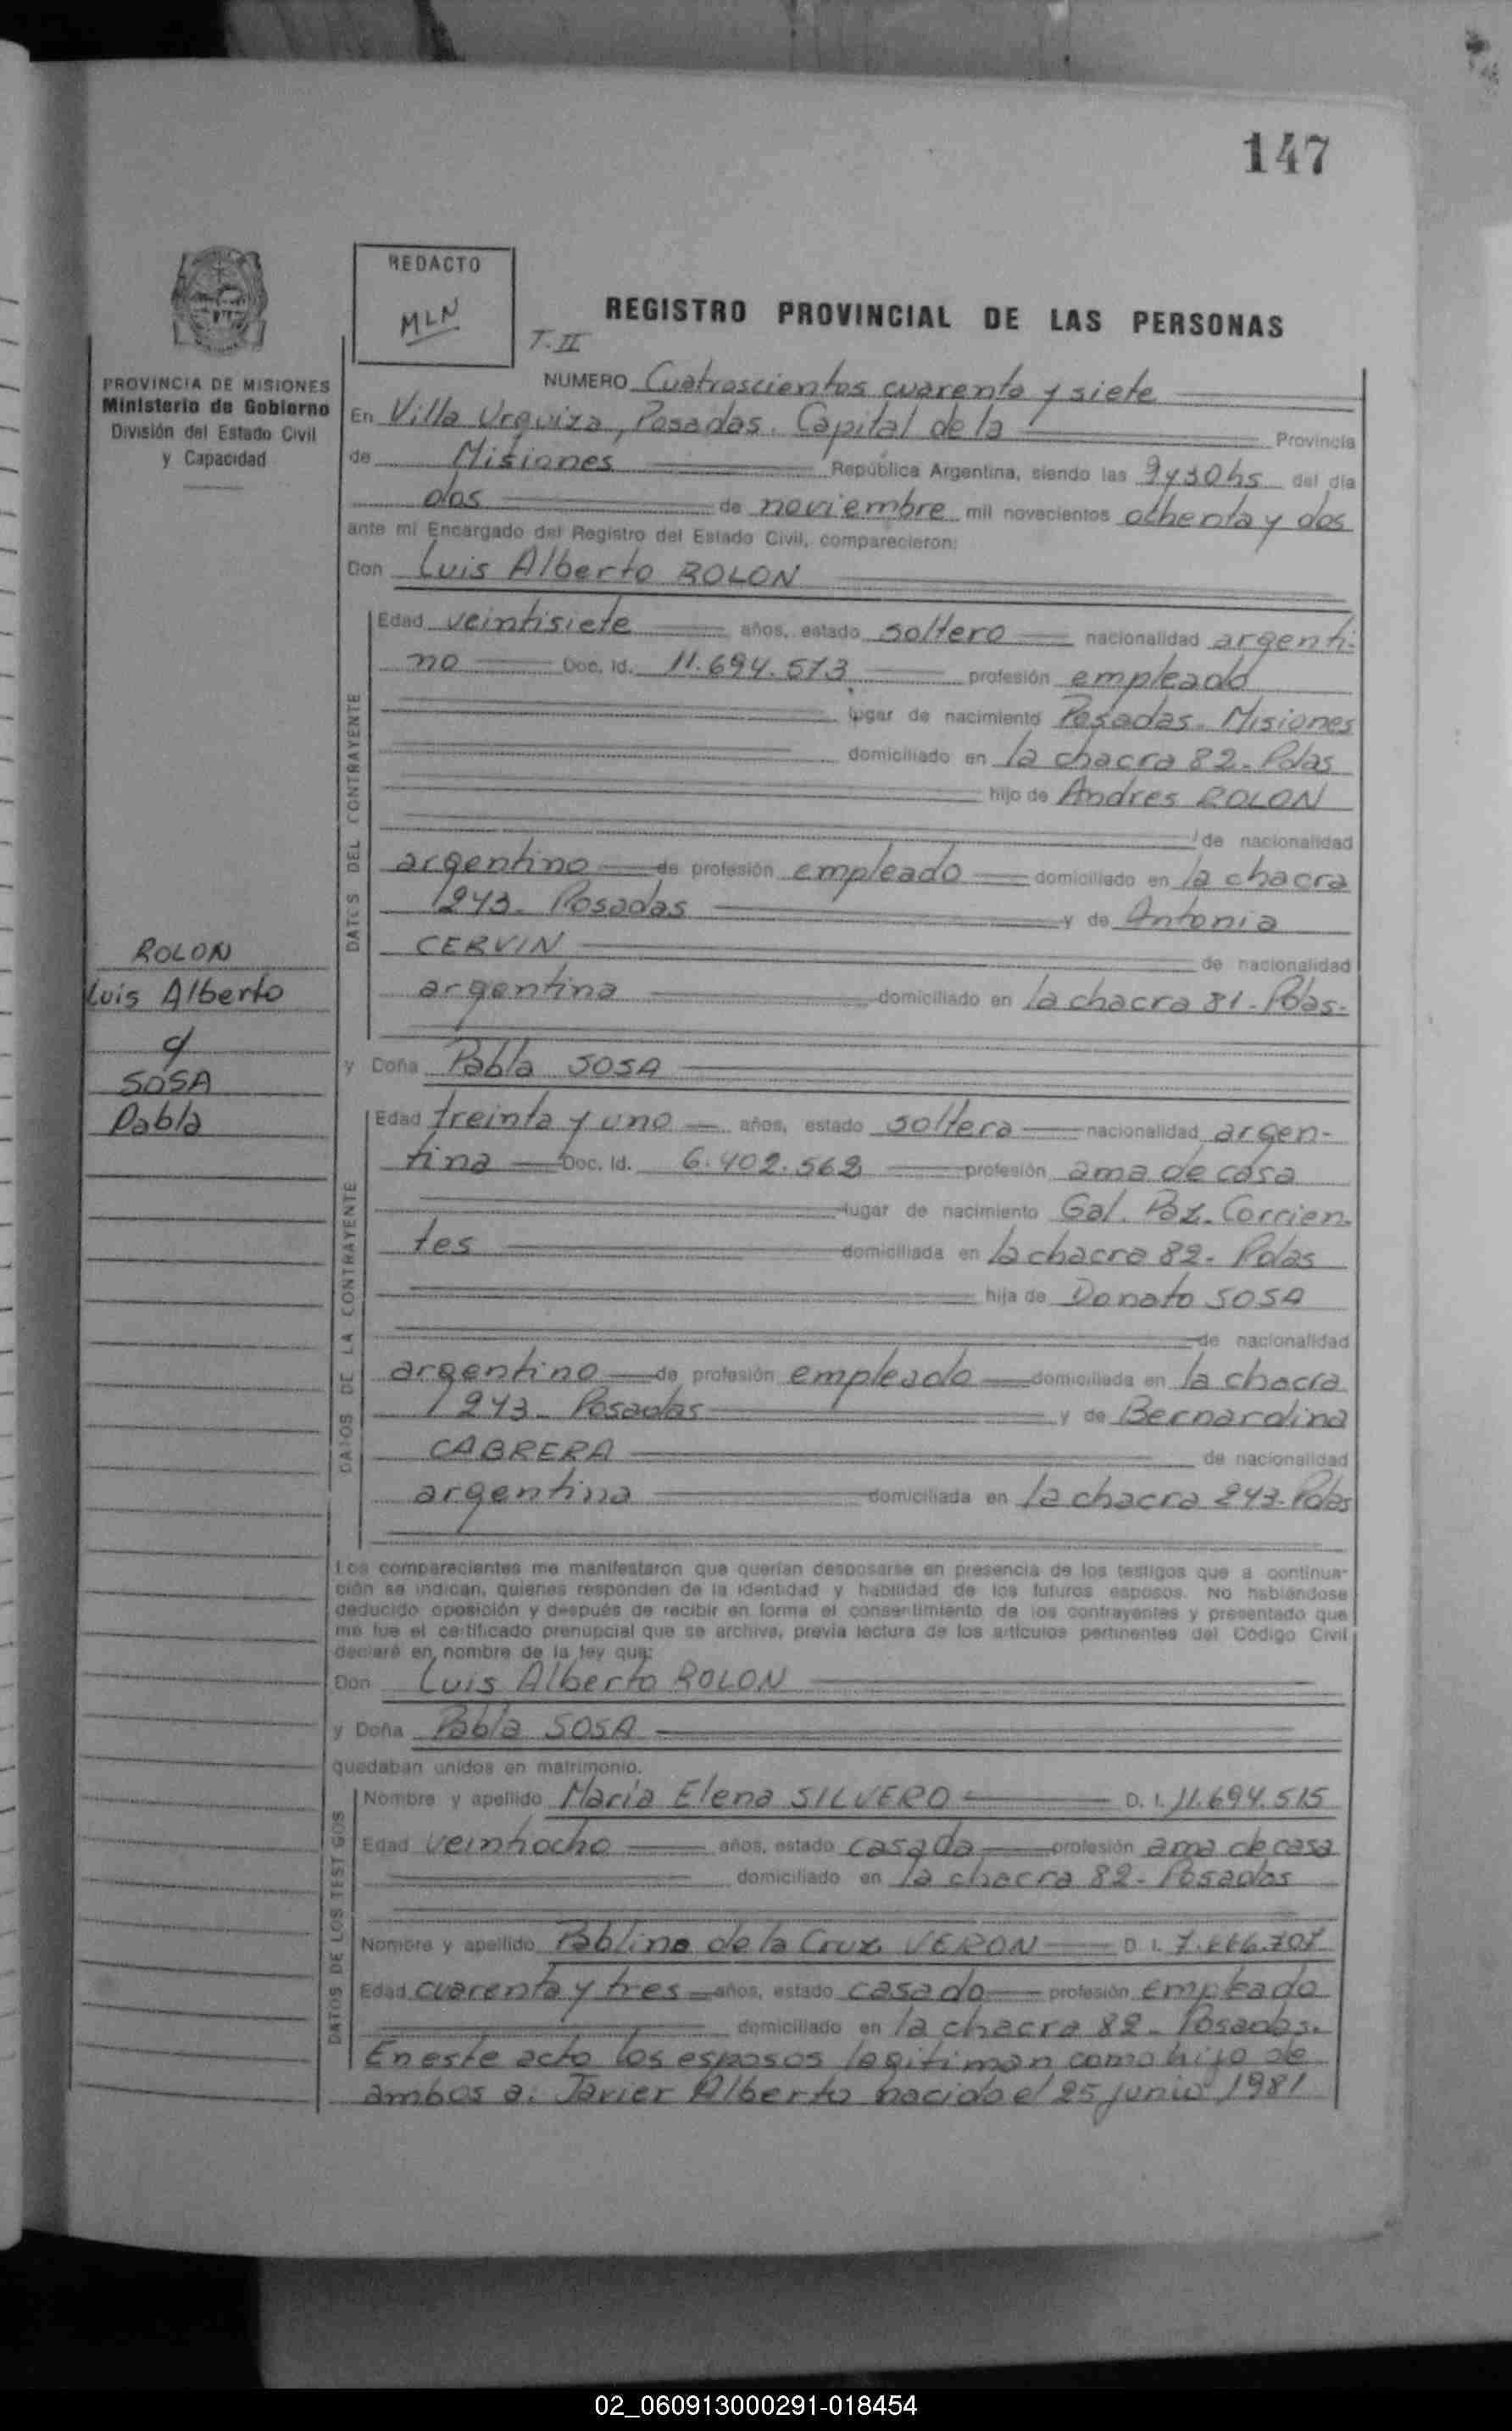 147
REDACTO
MLN
REGISTRO PROVINCIAL DE LAS PERSONAS
T. II
PROVINCIA DE MISIONES
Ministerio de Gobierno
División del Estado Civil
y Capacidad
NUMERO Cuatroscientos cuarenta y siete
En Villa Urquiza, Posadas. Capital de la Provincia
de Misiones República Argentina, siendo las 9y30hs del día
dos de noviembre mil novecientos ochenta y dos
ante mi Encargado del Registro del Estado Civil, comparecieron:
Don Luis Alberto ROLON
DATOS DEL CONTRAYENTE
Edad veintisiete años, estado soltero nacionalidad argenti-
no Doc. Id. 11.694.573 profesión empleado
lugar de nacimiento Posadas. Misiones
domiciliado en la chacra 82. Pdas
hijo de Andres ROLON
de nacionalidad
argentino de profesión empleado domiciliado en la chacra
243. Posadas y de Antonia
CERVIN de nacionalidad
argentina domiciliado en la chacra 81. Pdas.
ROLON
Luis Alberto
c/
SOSA
Pabla
y Doña Pabla SOSA
DATOS DE LA CONTRAYENTE
Edad treinta y uno años, estado soltera nacionalidad argen-
tina Doc. Id. 6.402.562 profesión ama de casa
lugar de nacimiento Gal. Paz. Corrien-
tes domiciliada en la chacra 82. Pdas
hija de Donato SOSA
de nacionalidad
argentino de profesión empleado domiciliada en la chacra
243. Posadas y de Bernardina
CABRERA de nacionalidad
argentina domiciliada en la chacra 243. Pdas
Los comparecientes me manifestaron que querían desposarse en presencia de los testigos que a continua-
ción se indican, quienes responden de la identidad y habilidad de los futuros esposos. No habiéndose
deducido oposición y después de recibir en forma el consentimiento de los contrayentes y presentado que
me fue el certificado prenupcial que se archiva, previa lectura de los artículos pertinentes del Código Civil
declaré en nombre de la ley que:
Don Luis Alberto ROLON
y Doña Pabla SOSA
quedaban unidos en matrimonio.
DATOS DE LOS TESTIGOS
Nombre y apellido María Elena SILVERO D. I. 11.694.515
Edad veintiocho años, estado casada profesión ama de casa
domiciliado en la chacra 82. Posadas
Nombre y apellido Pablino de la Cruz VERON D. I.
Edad cuarenta y tres años, estado casado profesión empleado
domiciliado en la chacra 82. Posadas.
En este acto los esposos legitiman como hijo de
ambos a: Javier Alberto nacido el 25 junio 1981
02_060913000291-018454